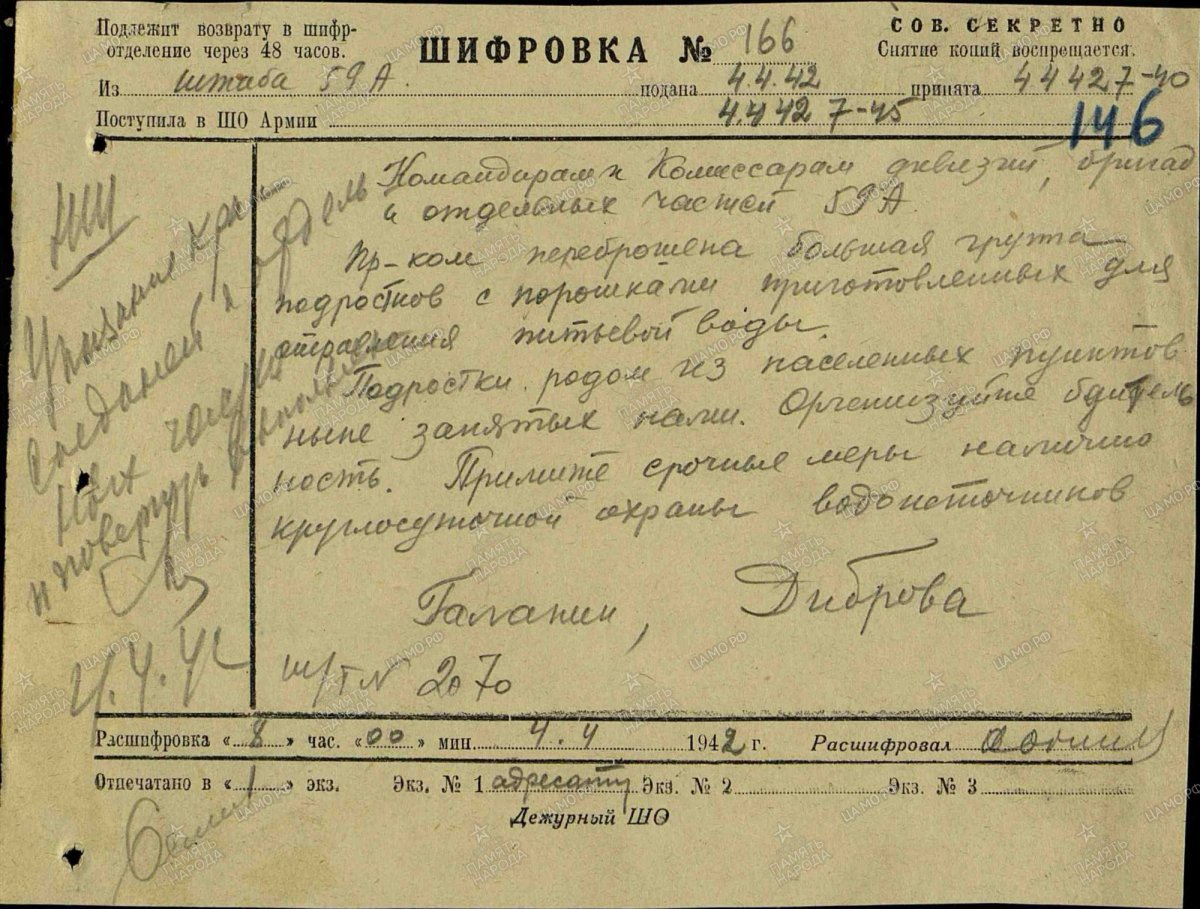 Подлежит возврату в шифр-
отделение через 48 часов.
ШИФРОВКА № 166
СОВ. СЕКРЕТНО
Снятие копий воспрещается.
Из штаба 59 А. подана 4.4.42 принята 4 4 42 7-40
Поступила в ШО Армии 4.4.42 7-45
146
Командирам и Комиссарам дивизий, бригад
и отдельных частей 59 А.
Пр-ком переброшена большая группа
подростков с порошками приготовленных для
отравления питьевой воды.
Подростки родом из населенных пунктов
ныне занятых нами. Организуйте бдитель
ность. Примите срочные меры
круглосуточной охраны водоисточников
Галанин, Диброва
ш/т № 2070
НШ
Указание
и
4.4.42
Расшифровка «8» час. «00» мин. 4.4 1942 г. Расшифровал
Отпечатано в «1» экз. Экз. № 1 адресату Экз. № 2 Экз. № 3
Дежурный ШО